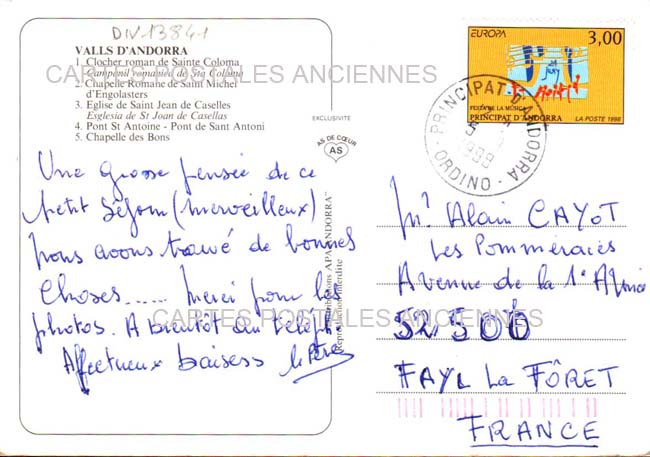 DIV13841
VALLS D'ANDORRA
1. Clocher roman de Sainte Coloma
Campenil romanica de Sta Coloma
2. Chapelle Romane de Saint Michel
d'Engolasters
3. Eglise de Saint Jean de Caselles
Esglesia de St Joan de Casellas
4. Pont St Antoine - Pont de Sant Antoni
5. Chapelle des Bons
CARTES POSTALES ANCIENNES
EXCLUSIVITE
AS DE CŒUR
AS
EUROPA
3,00
FESTA DE LA MÚSICA
PRINCIPAT D'ANDORRA
LA POSTE 1998
PRINCIPAT D'ANDORRA
1998
ORDINO
Une grosse pensée de ce
petit séjour (merveilleux)
nous avons trouvé de bonnes
choses...... merci pour les
photos. A bientôt au téléph.
Affectueux baisers le Père
Distributions APA "ANDORRA"
Reproduction interdite
CARTES POSTALES ANCIENNES
Mr Alain CAYOT
Les Pommeraies
Avenue de la 1e Armée
52500
FAYL La FÔRET
FRANCE